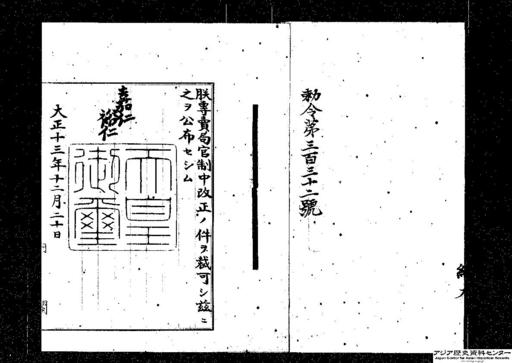 勅令第三百三十二號
朕專賣局官制中改正ノ件ヲ裁可シ茲ニ
之ヲ公布セシム
嘉仁
裕仁
天皇
御璽
大正十三年十二月二十日
内閣
アジア歴史資料センター
Japan Center for Asian Historical Records